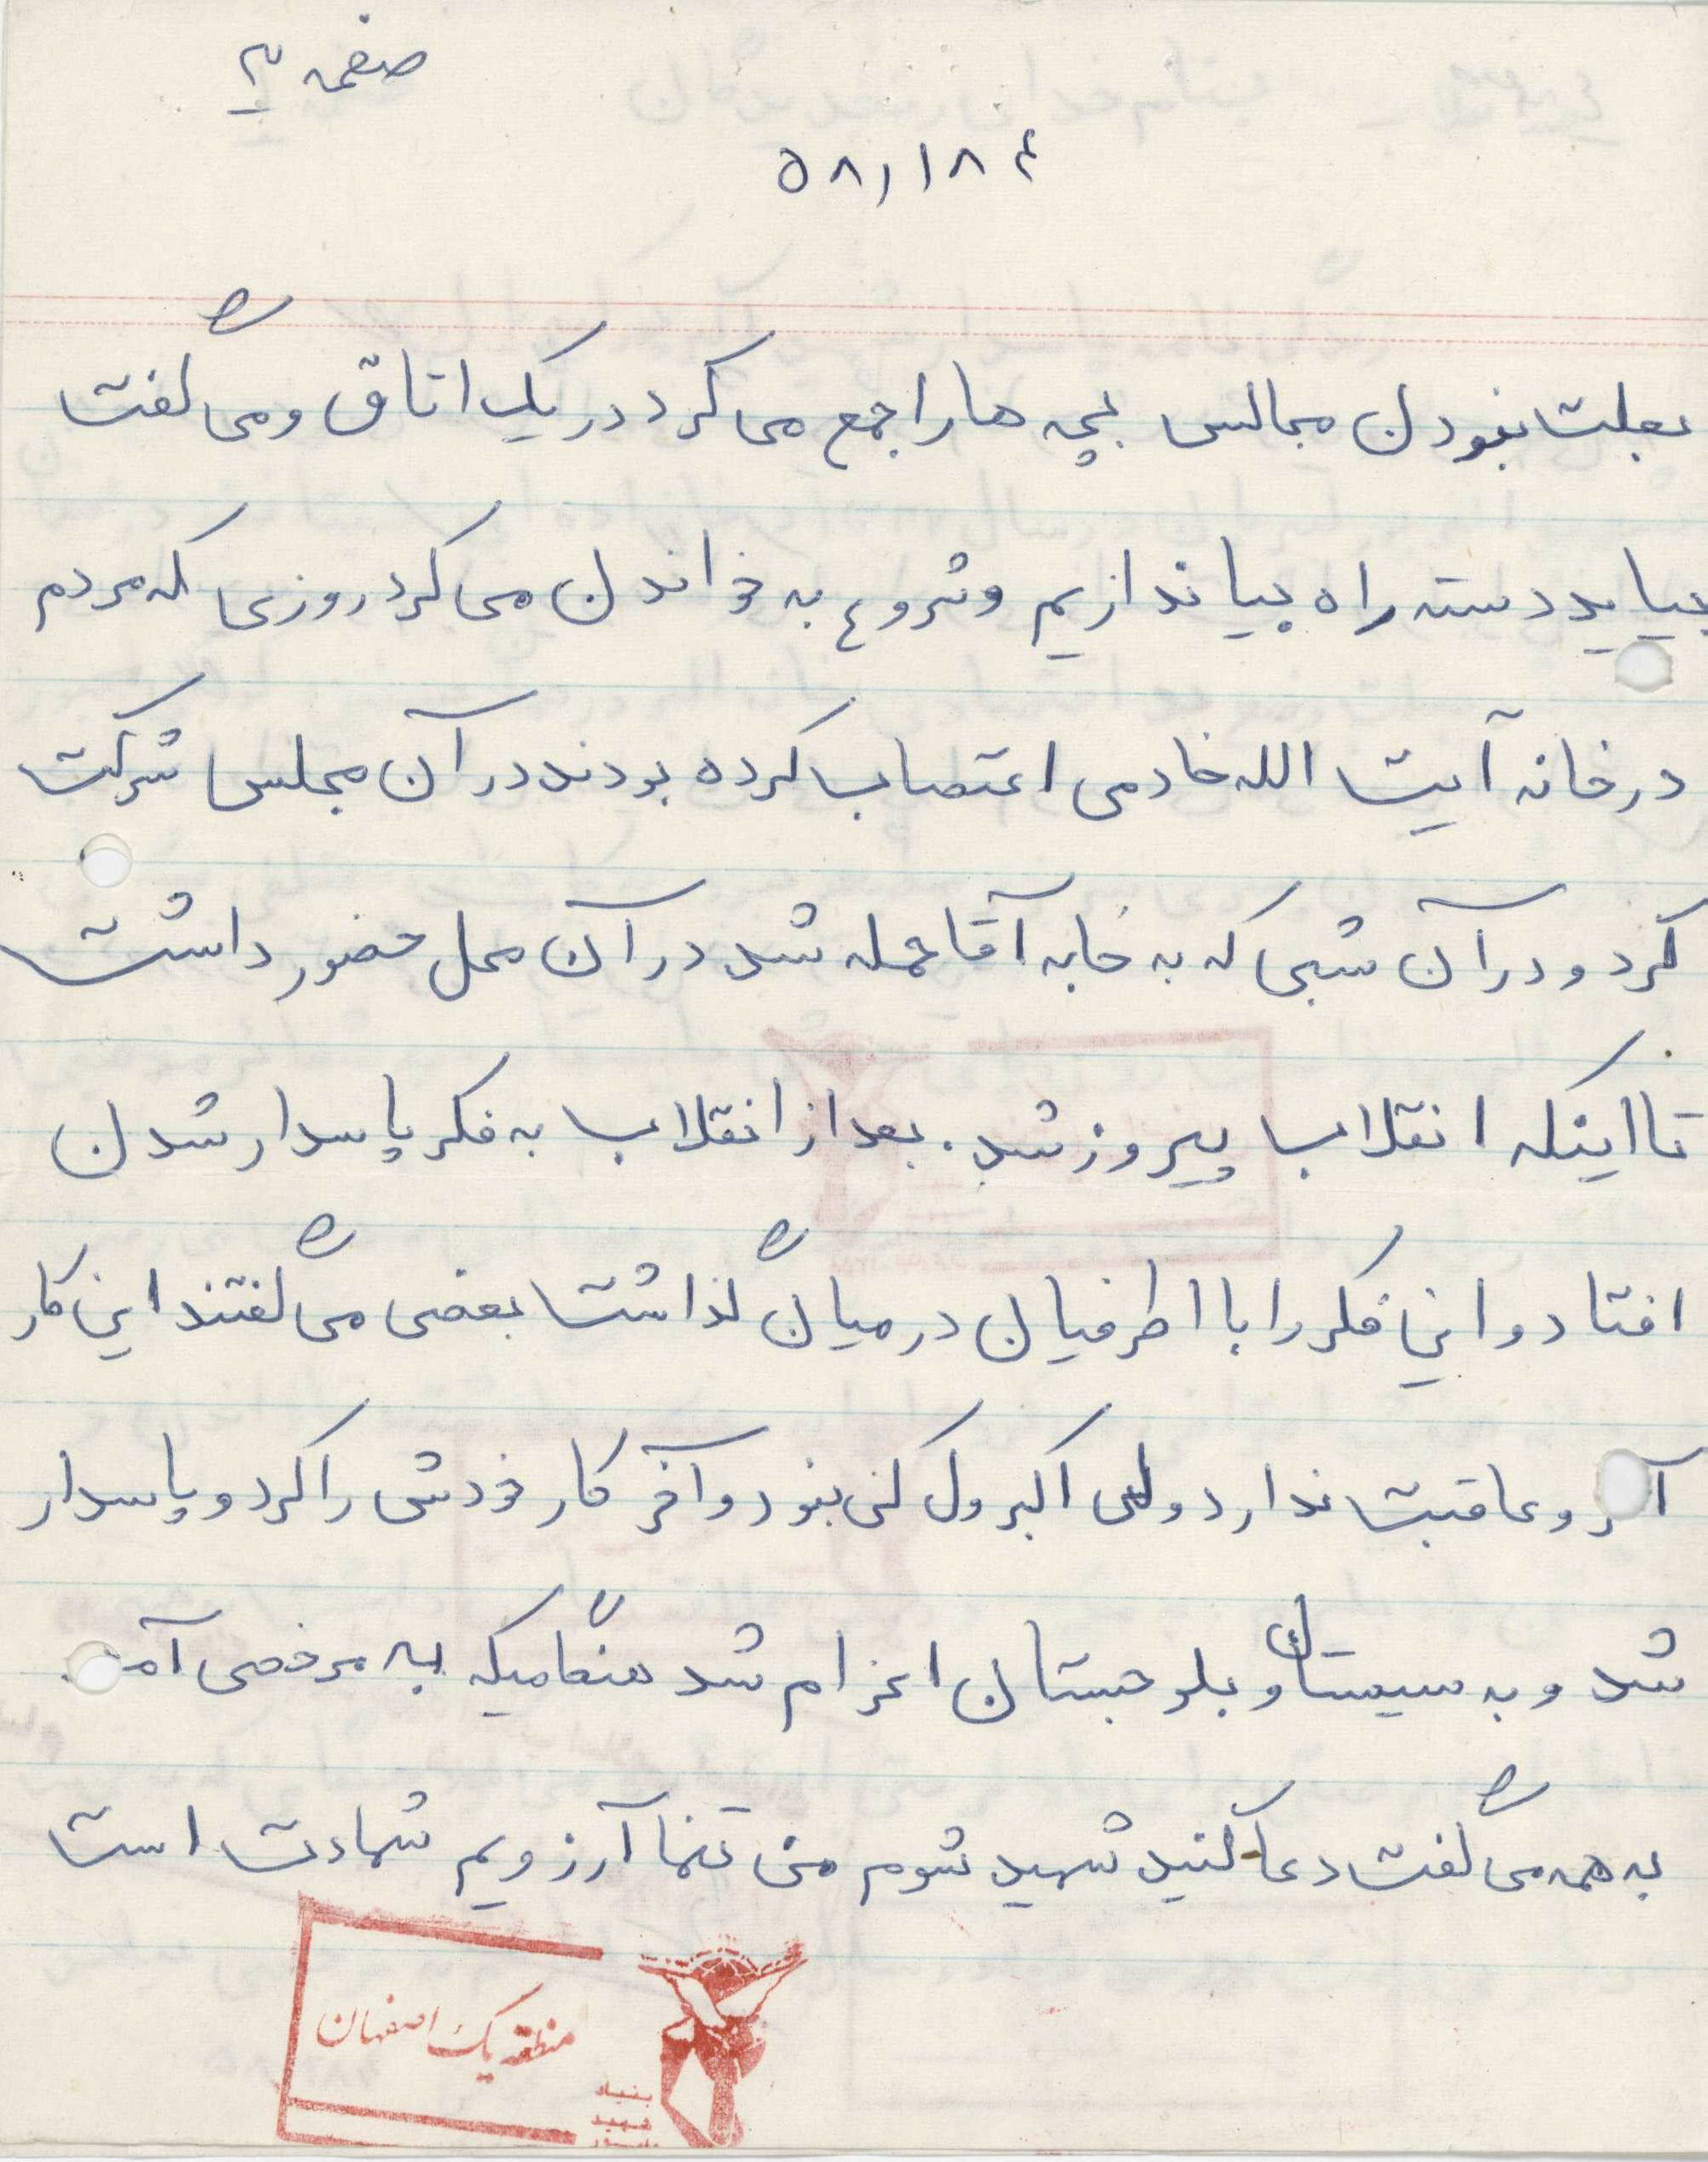 صفحه ۲
۵۸/۱۸۴
بعلت نبودن مجالس بچه ها را جمع می کرد در یک اتاق و می گفت
بیایید دسته راه بیاندازیم و شروع به خواندن می کرد روزی که مردم
در خانه آیت الله خادمی اعتصاب کرده بودند در آن مجلس شرکت
کرد و در آن شبی که به خانه آقا حمله شد در آن محل حضور داشت
تا اینکه انقلاب پیروز شد. بعد از انقلاب به فکر پاسدار شدن
افتاد و این فکر را با اطرفیان در میان گذاشت بعضی می گفتند این کار
و عاقبت ندارد ولی اکبر ول کن نبود و آخر کار خودش را کرد و پاسدار
شد و به سیستان و بلوچستان اعزام شد هنگامیکه به مرخصی
به همه می گفت دعا کنید شهید شوم من تنها آرزویم شهادت است
منطقه یک اصفهان
بنیاد
شهید